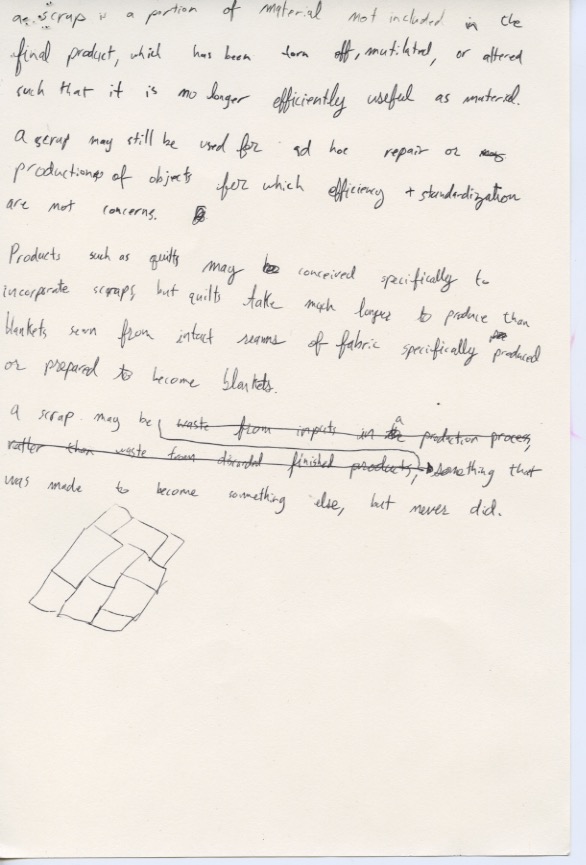 a scrap is a portion of material not included in the
final product, which has been torn off, mutilated, or altered
such that it is no longer efficiently useful as material.
a scrap may still be used for ad hoc repair or
production of objects for which efficiency + standardization
are not concerns.
Products such as quilts may be conceived specifically to
incorporate scraps, but quilts take much longer to produce than
blankets sewn from intact reams of fabric specifically produced
or prepared to become blankets.
a scrap may be waste from inputs in a production process,
rather than waste from discarded finished products, something that
was made to become something else, but never did.